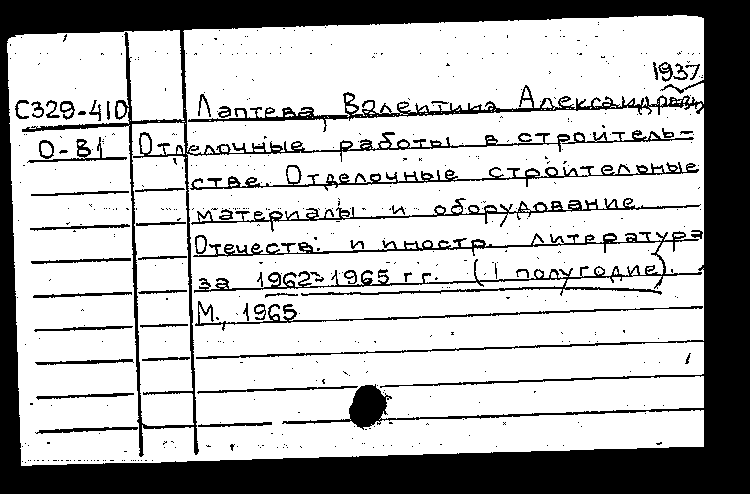 1937
С329-410 Лаптева, Валентина Александровна
О-81 Отделочные работы в строитель-
стве. Отделочные строительные
материалы и оборудование.
Отечеств. и иностр. литература
за 1962-1965 гг. (I полугодие).
М., 1965